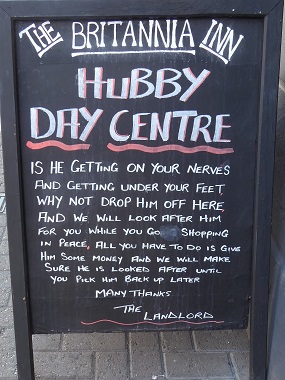 THE BRITANNIA INN
HUBBY
DAY CENTRE
IS HE GETTING ON YOUR NERVES
AND GETTING UNDER YOUR FEET,
WHY NOT DROP HIM OFF HERE,
AND WE WILL LOOK AFTER HIM
FOR YOU WHILE YOU GO SHOPPING
IN PEACE, ALL YOU HAVE TO DO IS GIVE
HIM SOME MONEY AND WE WILL MAKE
SURE HE IS LOOKED AFTER UNTIL
YOU PICK HIM BACK UP LATER
MANY THANKS
THE LANDLORD